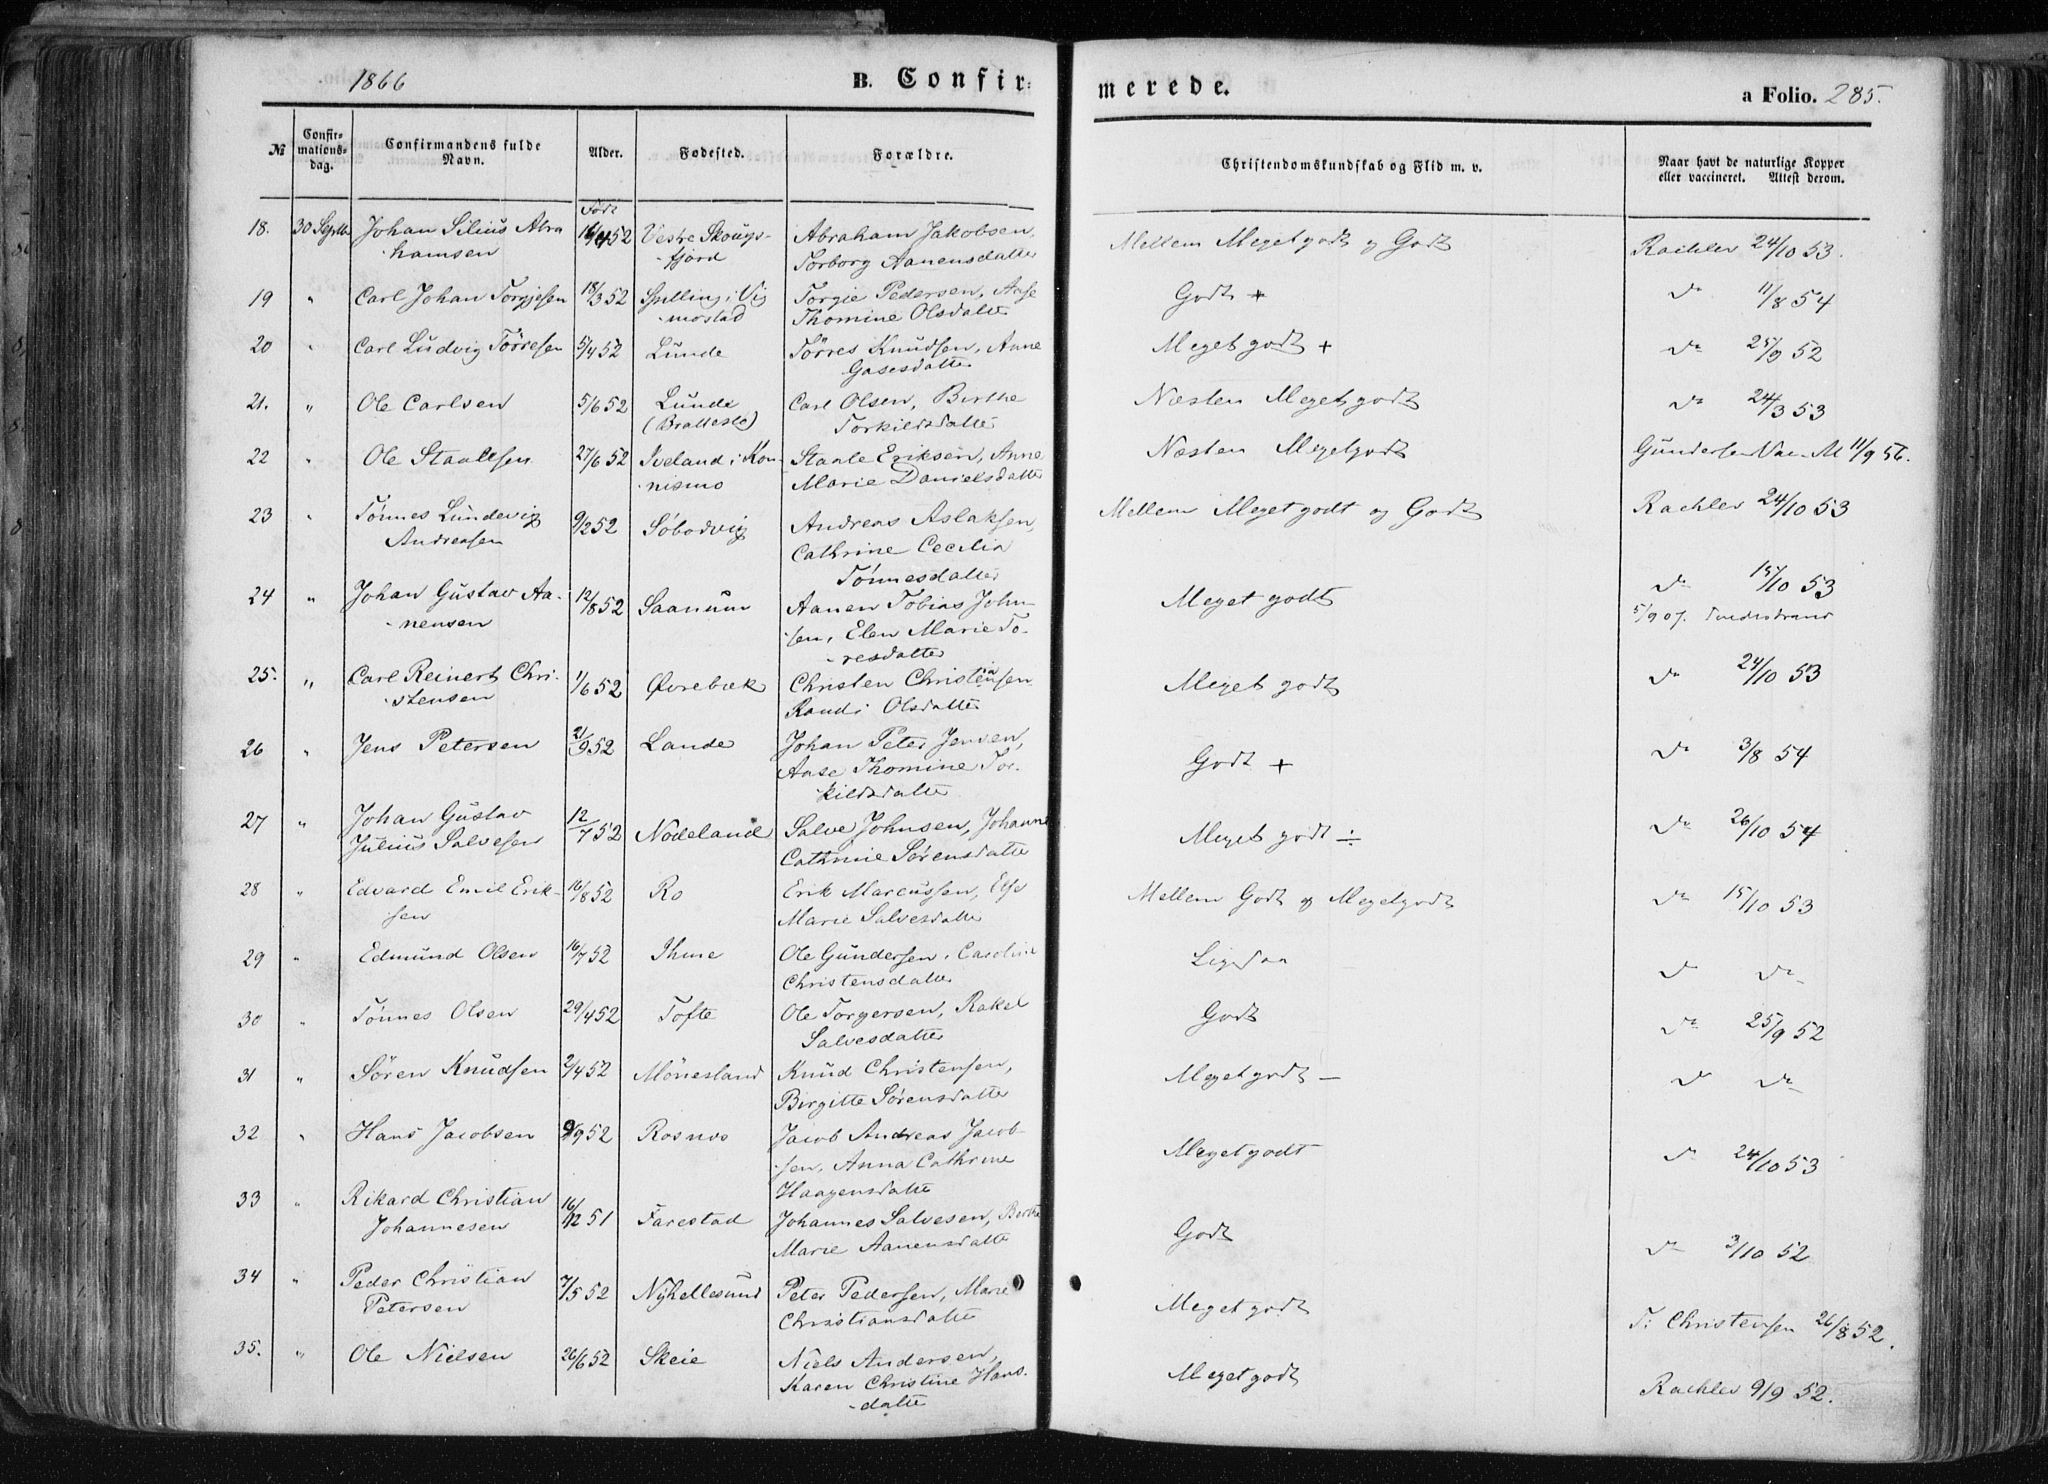 1866 B. Confir- merede. a Folio. 285.
№ Confir-mations-dag. Confirmandens fulde Navn. Alder. Fødested. Forældre. Christendomskundskab og Flid m. v. Naar havt de naturlige Kopper eller vaccineret. Attest derom.
Født
18. 30 Septb Johan Silius Abra 16/4 52 Vestre Skougs- Abraham Jakobsen, Mellem Meget godt og Godt Rachlev 24/10 53.
hamsen fjord Torborg Aanensdatter
19 " Carl Johan Torgjesen 18/3 52 Spilling i Vig Torgie Pedersen, Aase Godt + do 11/8 54
mostad Thomine Olsdatter
20 " Carl Ludvig Törresen 5/4 52 Lunde Törres Knudsen, Anne Meget godt + do 25/9 52
Gasesdatter
21. " Ole Carlsen 5/6 52 Lunde Carl Olsen, Berthe Næsten Meget godt do 24/3 53
(Brattestø) Torkildsdatter
22 " Ole Staalesen 27/6 52 Iveland i Kon- Staale Eriksen, Anne Næsten Megetgodt Gundersen Vac. M 11/9 56.
nismo Marie Danielsdatter
23 " Tønnes Lundevig 9/2 52 Søbodvig Andreas Aslaksen, Mellem Meget godt og Godt Rachlev 24/10 53
Andreasen Cathrine Cecilia
Tönnesdatter
24 " Johan Gustav Aa- 12/8 52 Saanum Aanen Tobias John- Meget godt do 15/10 53
nensen sen, Elen Marie To- 5/9 07. Tvedestrand
resdatter
25. " Carl Reinert Chri- 1/6 52 Øvrebæk Christen Christensen Meget godt do 24/10 53
stensen Randi Olsdatter
26 " Jens Petersen 21/9 52 Lande Johan Peter Jensen, Godt + do 3/8 54
Aase Thomine Tor-
kildsdatter
27 " Johan Gustav 12/7 52 Nodeland Salve Johnsen, Johanne Meget godt ÷ do 26/10 54
Julius Salvesen Cathrine Sørensdatter
28 " Edvard Emil Erik- 16/8 52 Ro Erik Marcussen, Else Mellem Godt og Megetgodt do 15/10 53
sen Marie Salvesdatter
29 " Edmund Olsen 16/7 52 Ihme Ole Gundersen, Caroline Ligesaa do do
Christensdatter
30 " Tönnes Olsen 29/4 52 Tofte Ole Torgersen, Rakel Godt do 25/9 52
Salvesdatter
31 " Sören Knudsen 2/4 52 Mönesland Knud Christensen, Meget godt - do do
Birgitte Sørensdatter
32 " Hans Jacobsen 9/9 52 Rosnes Jacob Andreas Jacob Meget godt do 24/10 53
sen, Anna Cathrine
Haagensdatter
33 " Rikard Christian 16/12 51 Farestad Johannes Salvesen, Berthe Godt do 3/10 52
Johannesen Marie Aanensdatter
34 " Peder Christian 7/5 52 Nyhellesund Peter Pedersen, Marie Meget godt T: Christensen 26/8 52.
Petersen Christiansdatter
35. " Ole Nielsen 26/6 52 Skeie Niels Andersen, Meget godt Rachlev 9/9 52.
Karen Christine Hans-
datter